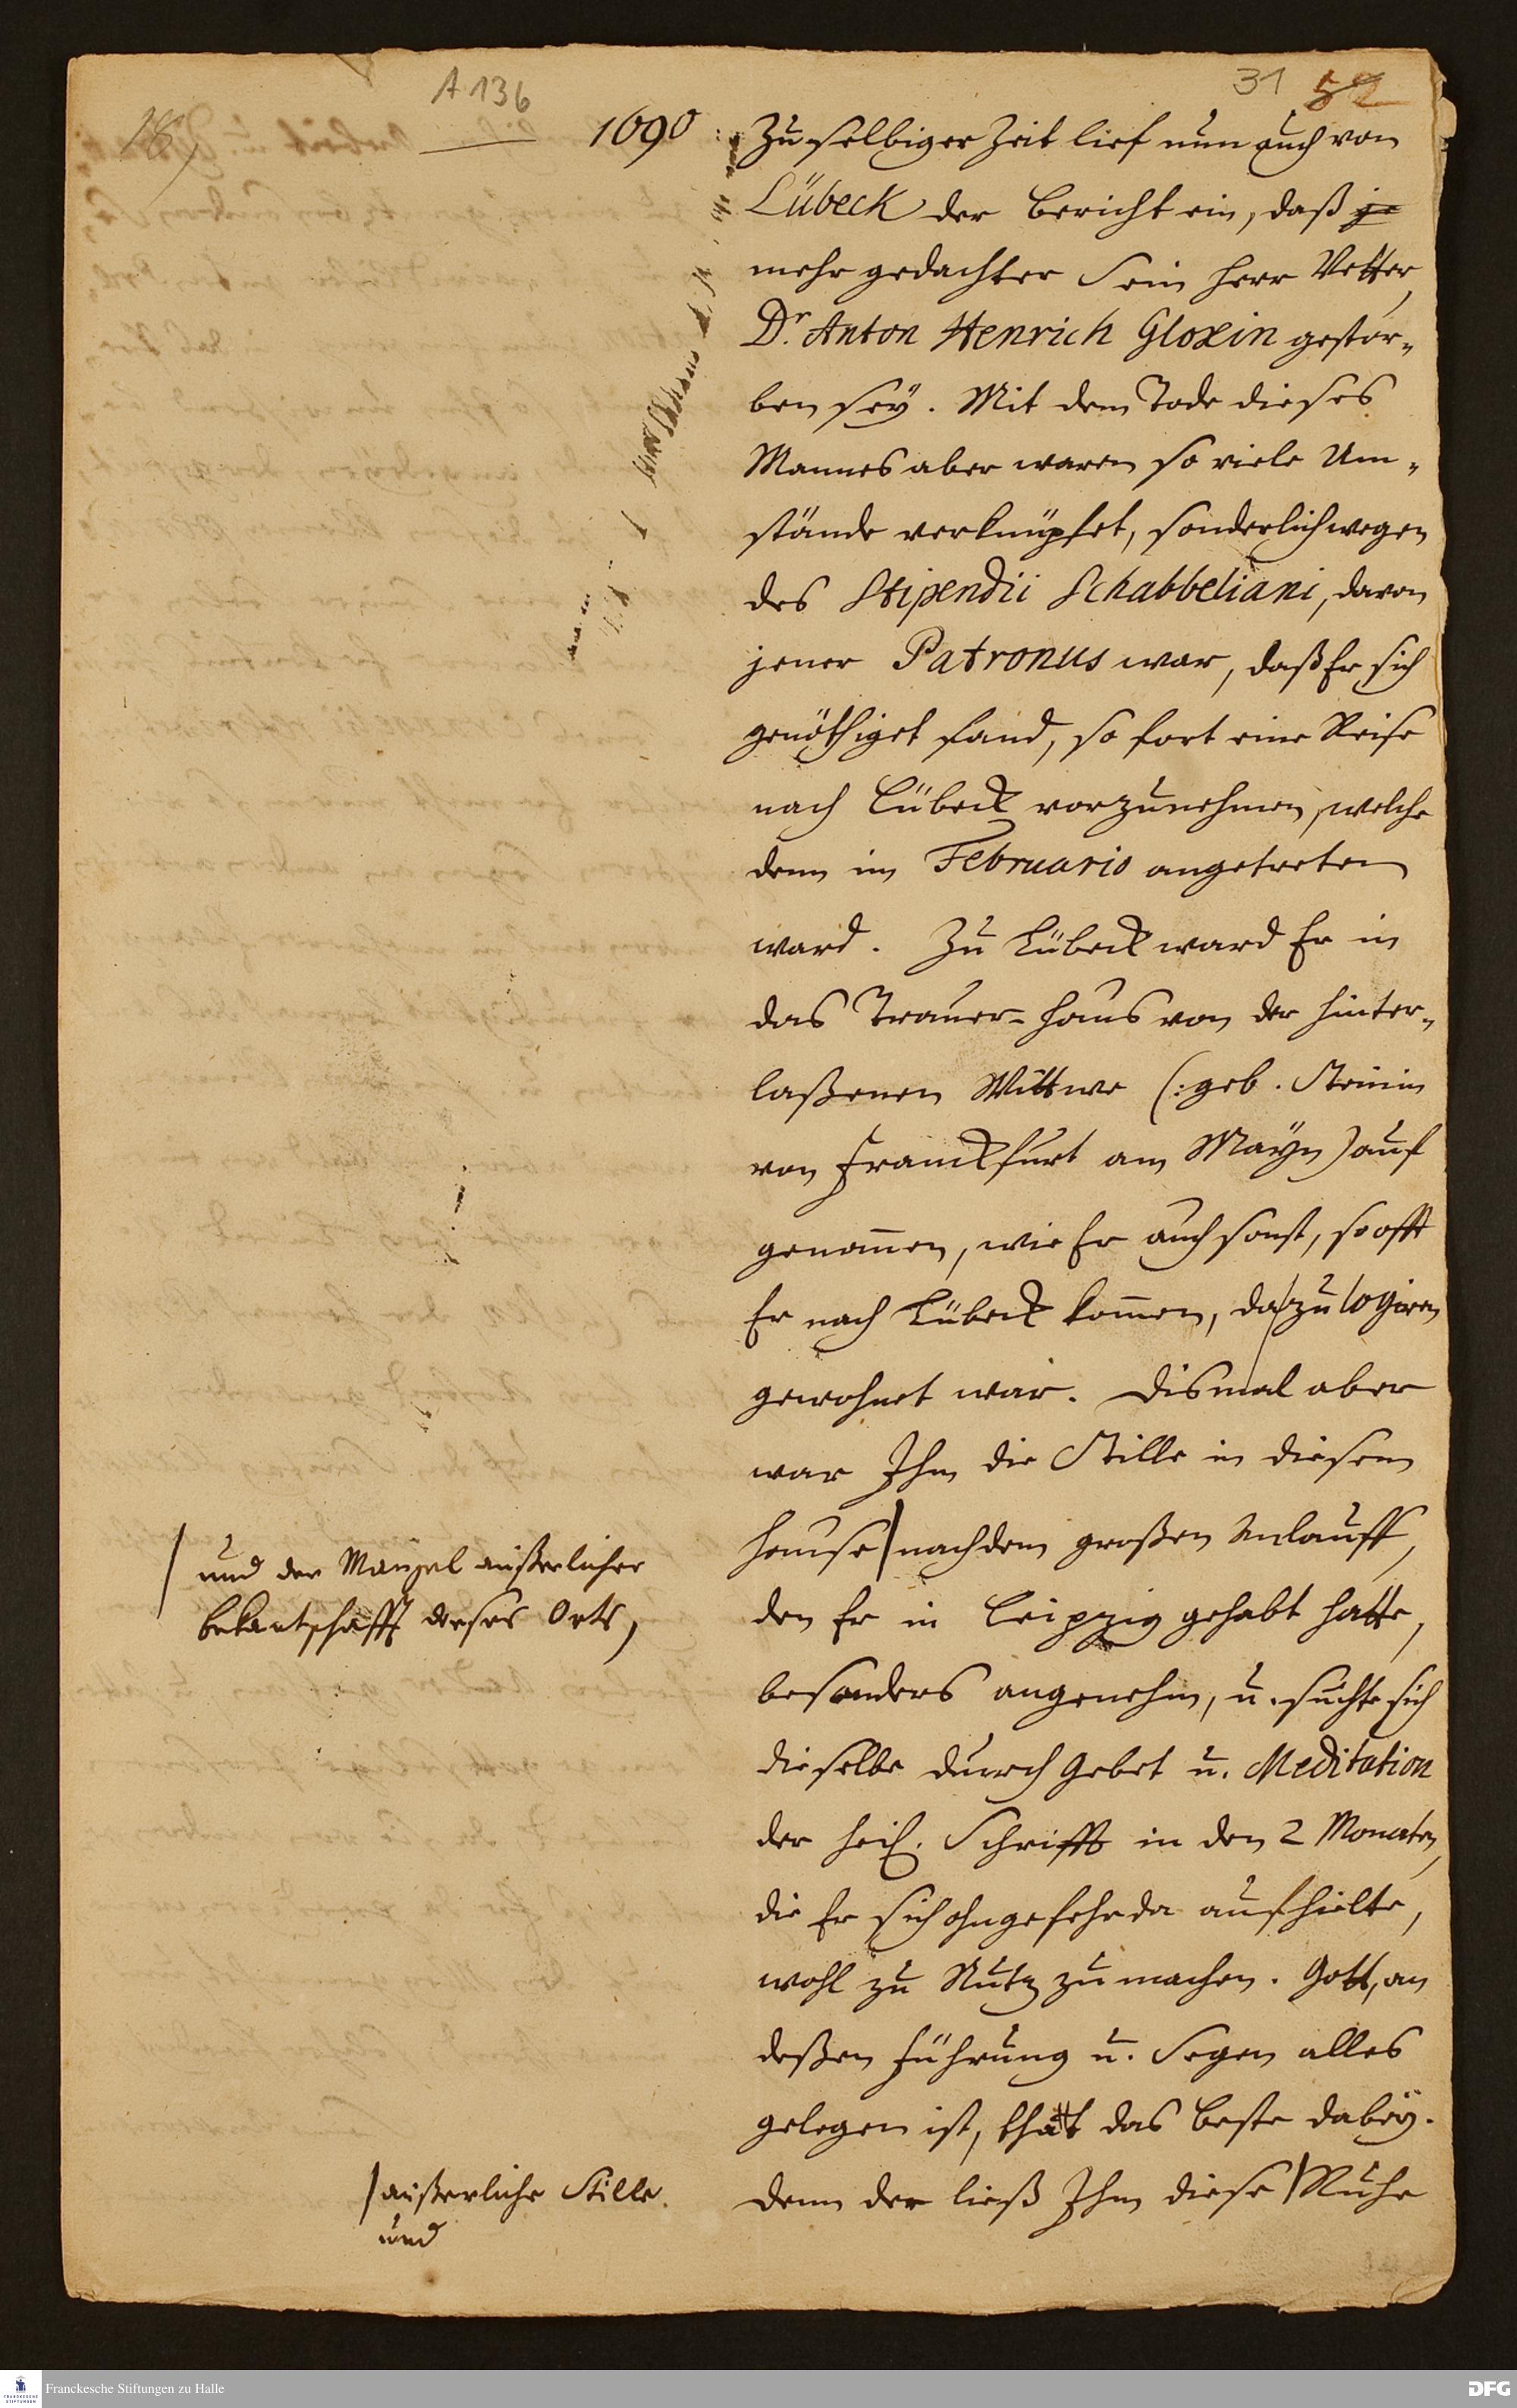 A 136
31 52
18)
1690
Zu selbiger Zeit lief nun auch von
Lübeck der Bericht ein, daß je
mehr gedachter Sein Herr Vetter,
Dr. Anton Henrich Gloxin gestor-
ben sey. Mit dem Tode dieses
Mannes aber waren so viele Um-
stände verknüpfet, sonderlich wegen
des Stipendii Schabbeliani, davon
jener Patronus war, daß Er sich
genöthiget fand, so fort eine Reise
nach Lübeck vorzunehmen, welche
denn im Februario angetreten
ward. Zu Lübeck ward Er in
das Trauer-Haus von der hinter-
laßenen Wittwe (: geb. Steinin
von Franckfurt am Mayn) auf
genom̄en, wie Er auch sonst, so offt
Er nach Lübeck kom̄en, da zu logiren
gewohnet war. Dismal aber
war Ihm die Stille in diesem
Hause / nach dem großen Anlauff,
und der Mangel äußerlicher
bekantschafft dieses Orts,
den Er in Leipzig gehabt hatte,
besonders angenehm, u. suchte sich
dieselbe durch Gebet u. Meditation
der heil. Schrifft in den 2 Monaten,
die Er sich ohngefehr da aufhielte,
wohl zu Nutz zu machen. Gott, an
deßen Führung u. Segen alles
gelegen ist, that das beste dabey.
Denn der ließ Ihm diese / Ruhe
/ äußerliche Stille.
und
Franckesche Stiftungen zu Halle
DFG